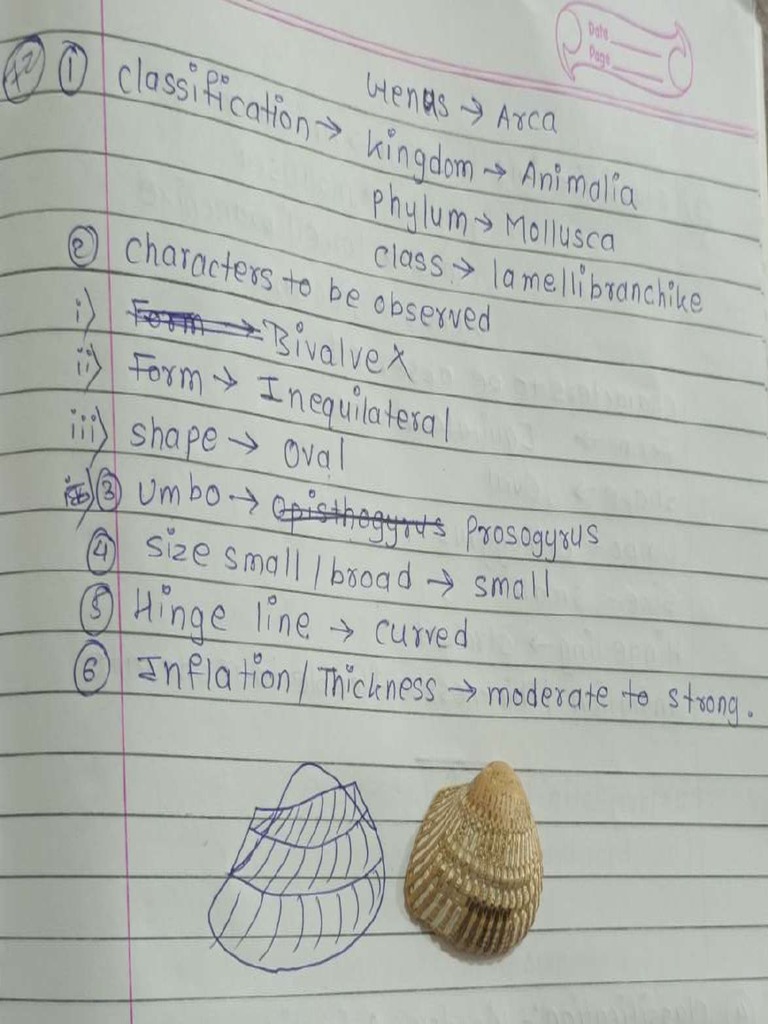 Date
Page
42 ① classification → Genus → Arca
kingdom → Animalia
phylum → Mollusca
class → lamellibranchike
② characters to be observed
i) Form → Bivalve x
ii) Form → Inequilateral
iii) shape → Oval
③ Umbo → Opisthogyrus Prosogyrus
④ Size small / broad → small
⑤ Hinge line → curved
⑥ Inflation / Thickness → moderate to strong.